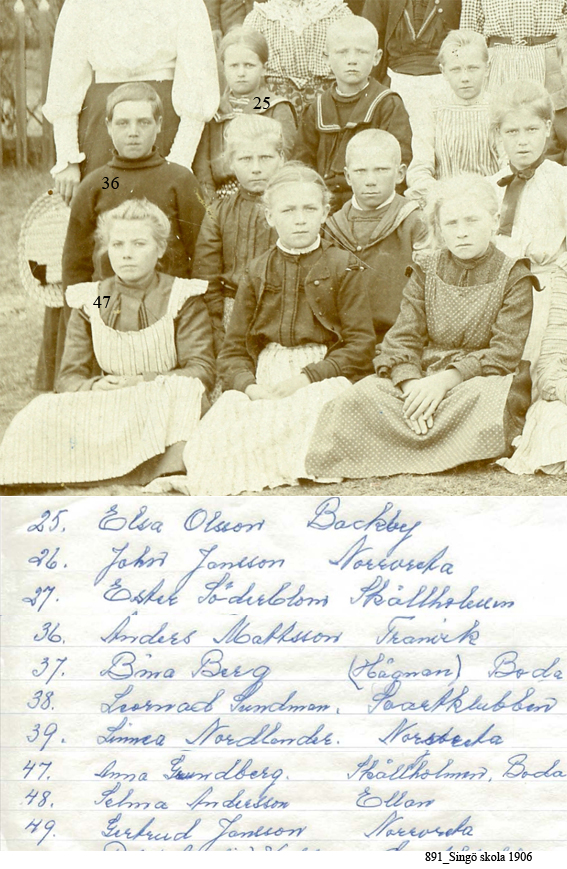 25
36
47
25. Elsa Olsson Backby
26. John Jansson Norrvreta
27. Ester Söderblom Skällholmen
36. Anders Mattsson Tranvik
37. Bina Berg (Hågnan) Boda
38. Leornad Sundman. Saartklubben
39. Linnea Nordlander. Norrvreta
47. Anna Grundberg. Skällholmen, Boda
48. Selma Andersson Ellan
49. Gertrud Jansson Norrvreta
891_Singö skola 1906